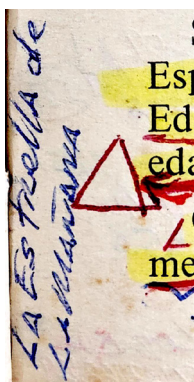 La Estrella de
La Mañana
Esp
Ed
eda
me